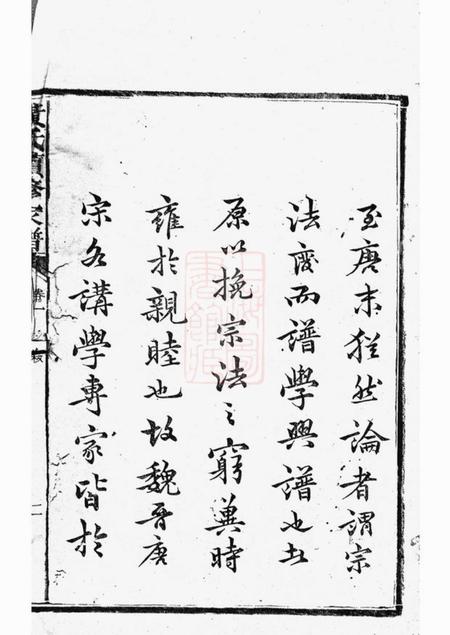 至唐末猶然論者謂宗
法廢而譜學興譜也者
原以挽宗法之窮冀時
雍於親睦也故魏晉唐
宋各講學專家皆於
黃氏續修家譜
卷一
二